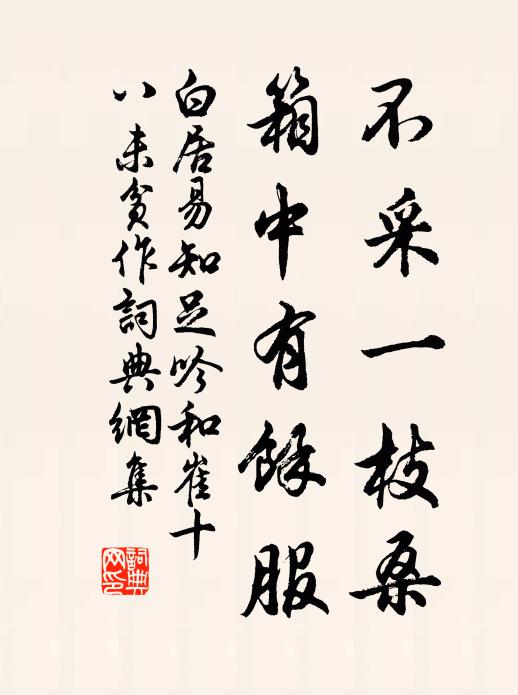 不采一枝桑
箱中有餘服
白居易知足吟和崔十
八未貧作詞典網集
詞典網印